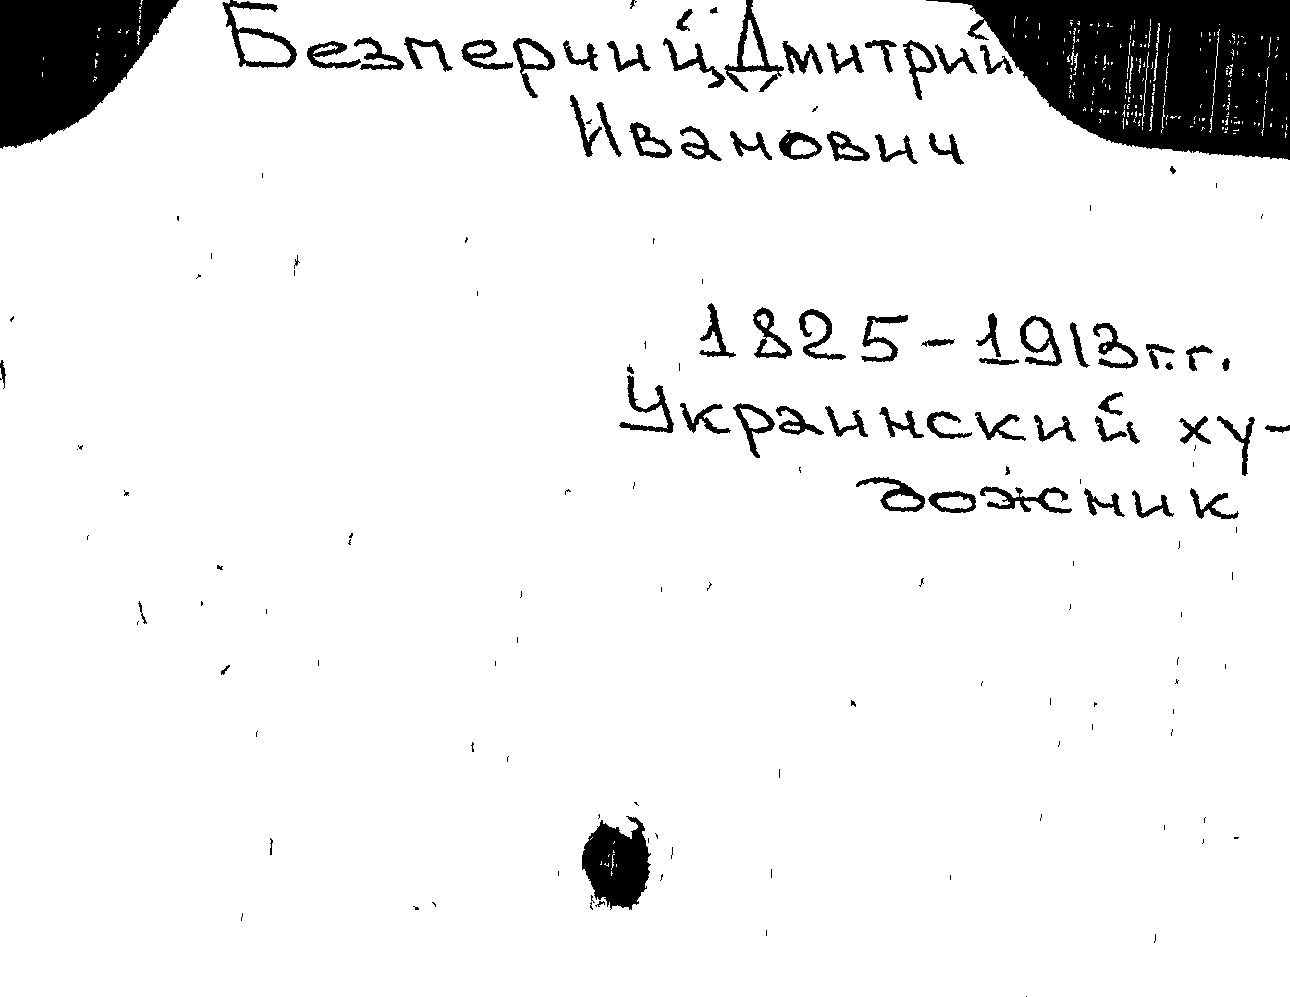 Безперчий, Дмитрий
Иванович
1825-1913г.г.
Украинский ху-
дожник